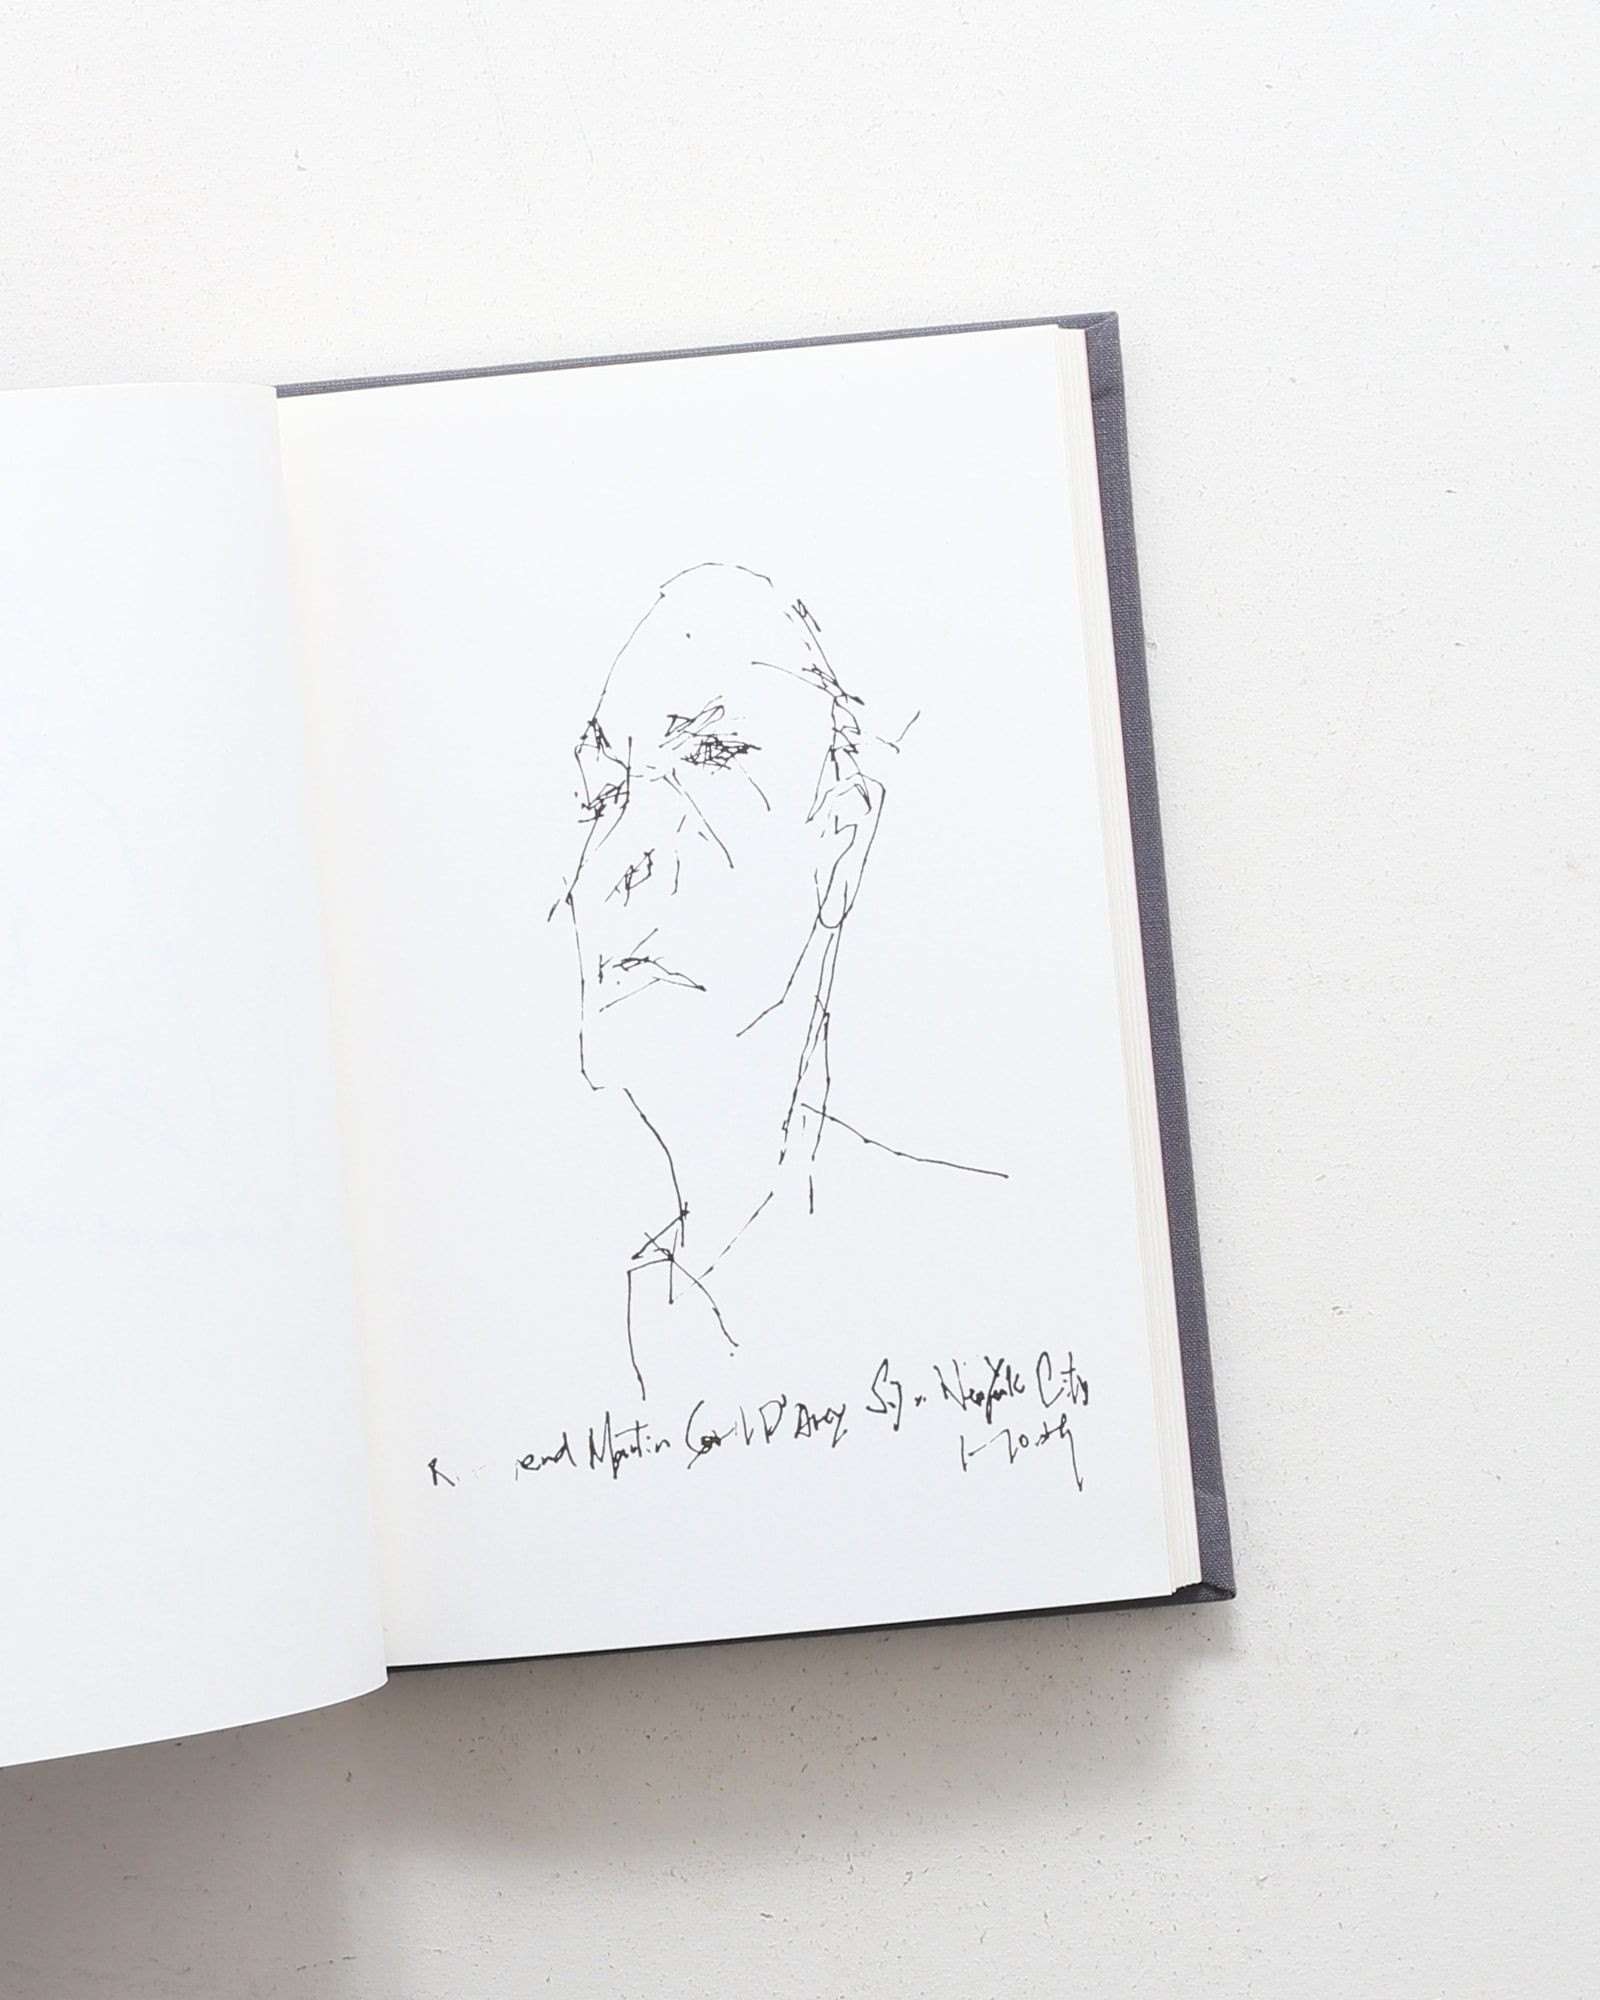 R end Martin Cyril D'Arcy S.J. New York City
1-20.69